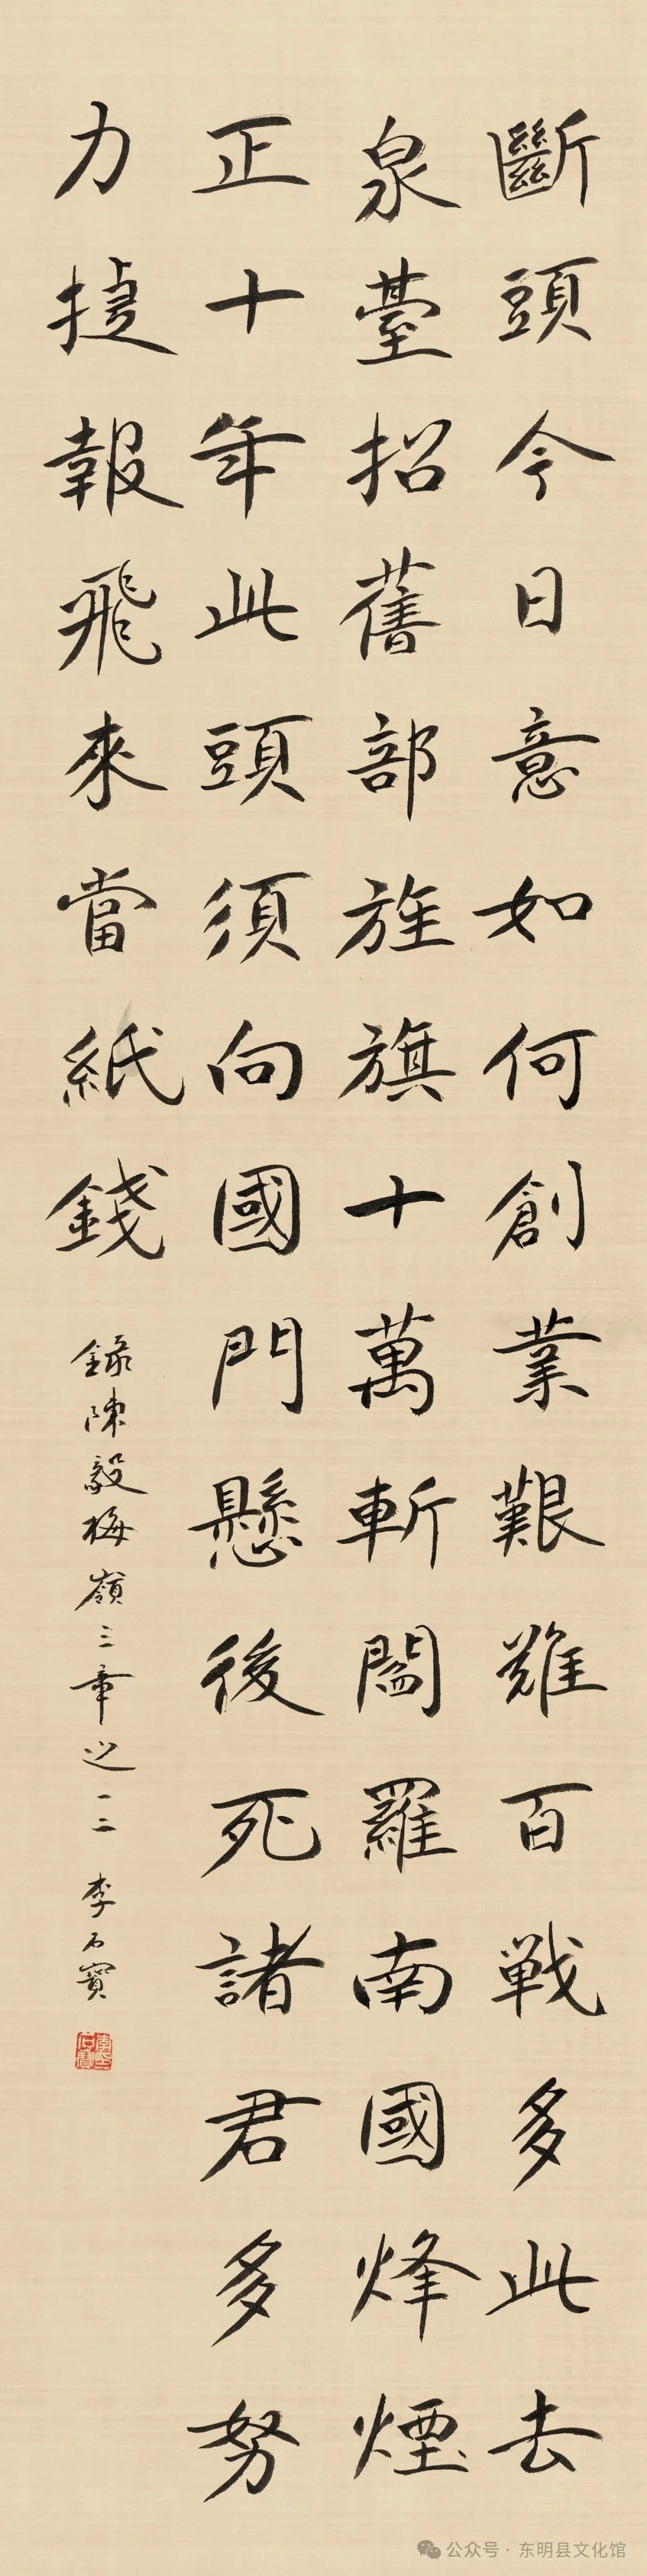 斷頭今日意如何創業艱難百戰多此去
泉臺招舊部旌旗十萬斬閻羅南國烽煙
正十年此頭須向國門懸後死諸君多努
力捷報飛來當紙錢
錄陳毅梅嶺三章之一二 李石寶
公众号·东明县文化馆